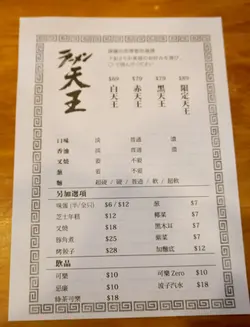 ラーメン
天王
$69 $79 $79 $89
白天王 赤天王 黑天王 限定天王
口味 淡 普通 濃
香油 淡 普通 濃
叉燒 要 不要
蔥 要 不要
麵 超硬 / 硬 / 普通 / 軟 / 超軟
另加選項
味蛋 (半/全只) $6 / $12 蔥 $7
芝士年糕 $12 椰菜 $7
叉燒 $18 黑木耳 $7
豚角煮 $25 紫菜 $7
烤餃子 $28 加麵底 $12
飲品
可樂 $10 可樂 Zero $10
忌廉 $10 波子汽水 $18
綠茶可樂 $18